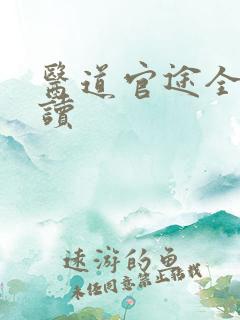 醫道官途全
讀
遠游的魚
未经同意禁止转载